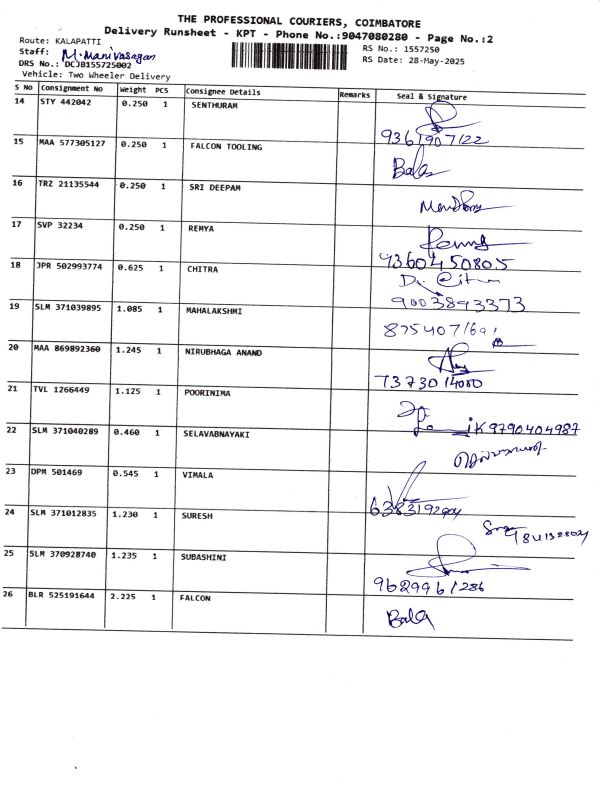 THE PROFESSIONAL COURIERS, COIMBATORE
Delivery Runsheet - KPT - Phone No.:9047080280 - Page No.:2
Route: KALAPATTI
RS No.: 1557250
Staff: M. Manivasagan
RS Date: 28-May-2025
DRS No.: DCJB155725002
Vehicle: Two Wheeler Delivery
S No Consignment No Weight PCS Consignee Details Remarks Seal & Signature
14 STY 442042 0.250 1 SENTHURAM
9361907122
15 MAA 577305127 0.250 1 FALCON TOOLING
Bala
16 TRZ 21135544 0.250 1 SRI DEEPAM
17 SVP 32234 0.250 1 REMYA
9360450805
18 JPR 502993774 0.625 1 CHITRA
9003893373
19 SLM 371039895 1.085 1 MAHALAKSHMI
20 MAA 869892360 1.245 1 NIRUBHAGA ANAND
7373014000
21 TVL 1266449 1.125 1 POORINIMA
9790404987
22 SLM 371040289 0.460 1 SELAVABNAYAKI
23 DPM 501469 0.545 1 VIMALA
24 SLM 371012835 1.230 1 SURESH
25 SLM 370928740 1.235 1 SUBASHINI
9629961286
26 BLR 525191644 2.225 1 FALCON
Bala